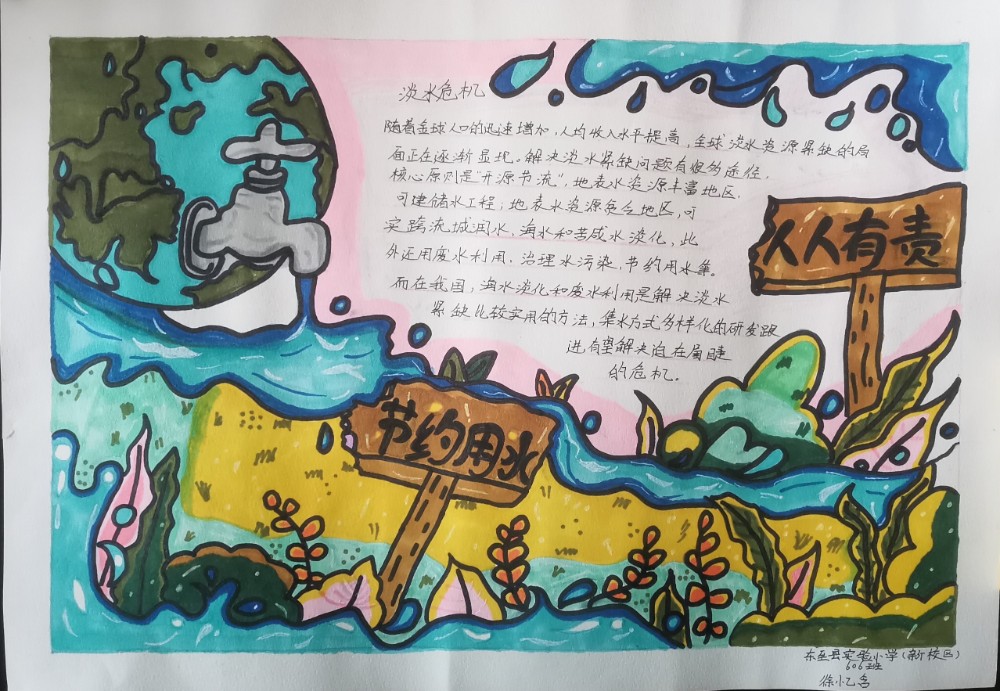 淡水危机
随着全球人口的迅速增加，人均收入水平提高，全球淡水资源紧缺的局
面正在逐渐显现。解决淡水紧缺问题有很多途径.
核心原则是"开源节流"，地表水资源丰富地区.
可建储水工程；地表水资源贫乏地区，可
实跨流域调水，海水和苦咸水淡化，此
外还用废水利用、治理水污染、节约用水集。
而在我国，海水淡化和废水利用是解决淡水
紧缺比较实用的方法，集水方式多样化的研发跟
进有望解决迫在眉睫
的危机.
人人有责
节约用水
县实验小学(新校区)
606班
徐小